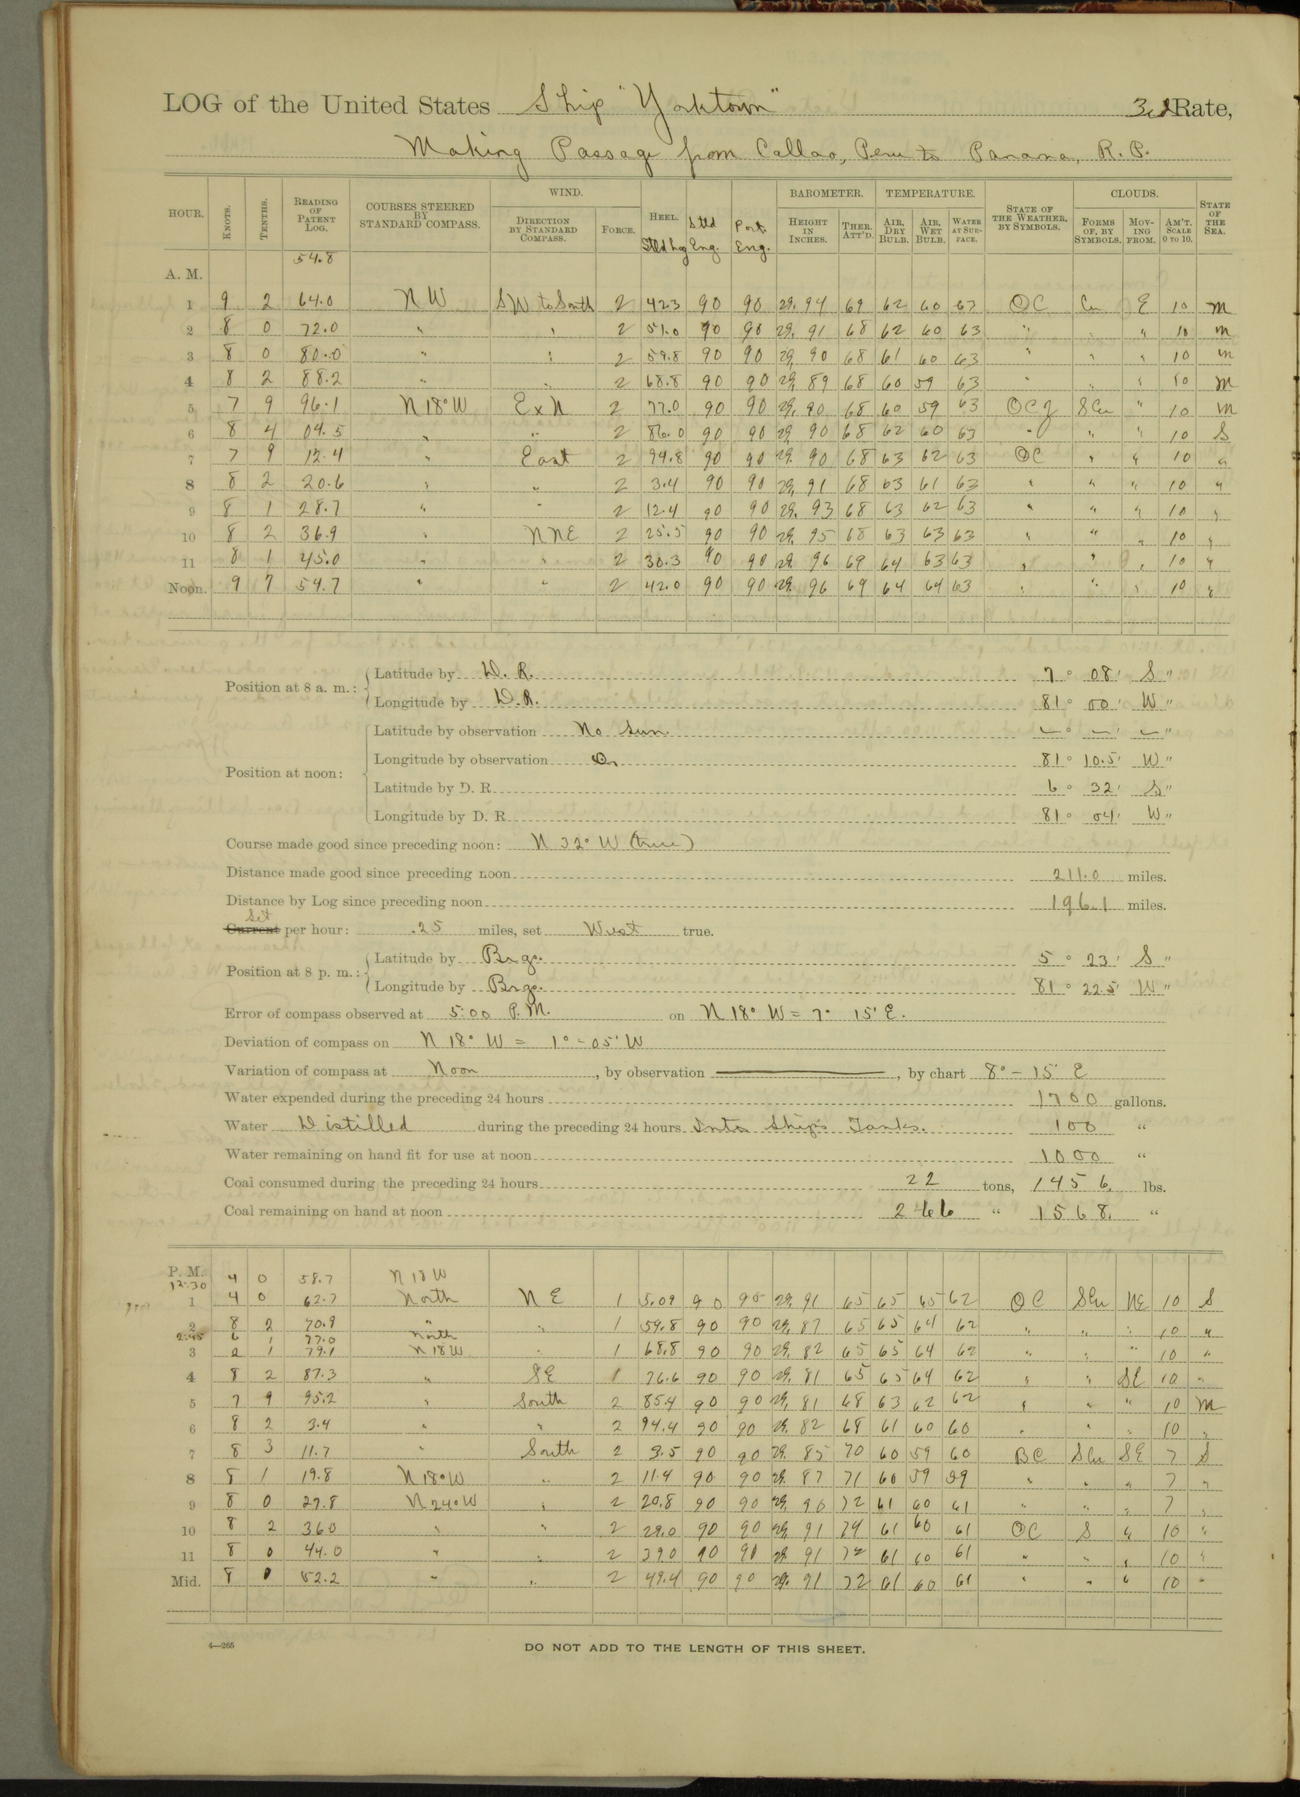 LOG of the United States Ship "Yorktown" 3rd Rate,
Making Passage from Callao, Peru to Panama, R. P.
HOUR. KNOTS. TENTHS. READING OF PATENT LOG. COURSES STEERED BY STANDARD COMPASS. WIND. DIRECTION BY STANDARD COMPASS. FORCE. HEEL. Stbd log Stbd Eng. Port. Eng. BAROMETER. HEIGHT IN INCHES. THER. ATT'D. TEMPERATURE. AIR, DRY BULB. AIR, WET BULB. WATER AT SURFACE. STATE OF THE WEATHER, BY SYMBOLS. CLOUDS. FORMS OF, BY SYMBOLS. MOVING FROM. AM'T. SCALE 0 TO 10. STATE OF THE SEA.
54.8
A. M.
1 9 2 64.0 NW SW to South 2 42.3 90 90 29.94 69 62 60 63 OC Cu E 10 M
2 8 0 72.0 " " 2 51.0 90 90 29.91 68 62 60 63 " " " 10 m
3 8 0 80.0 " " 2 59.8 90 90 29.90 68 61 60 63 " " " 10 m
4 8 2 88.2 " " 2 68.8 90 90 29.89 68 60 59 63 " " " 10 M
5 7 9 96.1 N18°W ExN 2 77.0 90 90 29.90 68 60 59 63 OCg SCu " 10 M
6 8 4 04.5 " " 2 86.0 90 90 29.90 68 62 60 63 " " " 10 S
7 7 9 12.4 " East 2 94.8 90 90 29.90 68 63 62 63 OC " " 10 "
8 8 2 20.6 " " 2 3.4 90 90 29.91 68 63 61 63 " " " 10 "
9 8 1 28.7 " " 2 12.4 90 90 29.93 68 63 62 63 " " " 10 "
10 8 2 36.9 " NNE 2 25.5 90 90 29.95 68 63 63 63 " " " 10 "
11 8 1 45.0 " " 2 30.3 90 90 29.96 69 64 63 63 " " " 10 "
Noon. 9 7 54.7 " " 2 42.0 90 90 29.96 69 64 64 63 " " " 10 "
Position at 8 a. m.: Latitude by D. R. 7° 08' S"
Longitude by D.R. 81° 00' W"
Position at noon: Latitude by observation No Sun — ° — ' — "
Longitude by observation 81° 10.5' W"
Latitude by D. R. 6° 32' S"
Longitude by D. R. 81° 04' W"
Course made good since preceding noon: N 32° W (true)
Distance made good since preceding noon 211.0 miles.
Distance by Log since preceding noon 196.1 miles.
Set
Current per hour: .25 miles, set West true.
Position at 8 p. m.: Latitude by Brgs. 5° 23' S"
Longitude by Brgs. 81° 22.5' W"
Error of compass observed at 5:00 P.M. on N 18° W = 7° 15' E.
Deviation of compass on N 18° W = 1° - 05' W
Variation of compass at Noon, by observation ———, by chart 8° - 15' E
Water expended during the preceding 24 hours 1700 gallons.
Water Distilled during the preceding 24 hours Into Ship's Tanks. 100 "
Water remaining on hand fit for use at noon 1000 "
Coal consumed during the preceding 24 hours 22 tons, 1456 lbs.
Coal remaining on hand at noon 266 " 1568. "
P. M.
12.30 4 0 58.7 N 18 W
1 4 0 62.7 North NE 1 5.09 90 90 29.91 65 65 65 62 OC SCu NE 10 S
2 8 2 70.9 " " 1 59.8 90 90 29.87 65 65 64 62 " " " 10 "
2.45 6 1 77.0 North
3 2 1 79.1 N18W " 1 68.8 90 90 29.82 65 65 64 62 " " " 10 "
4 8 2 87.3 " SE 1 76.6 90 90 29.81 65 65 64 62 " " SE 10 "
5 7 9 95.2 " South 2 85.4 90 90 29.81 68 63 62 62 " " " 10 M
6 8 2 3.4 " " 2 94.4 90 90 29.82 68 61 60 60 " " " 10 "
7 8 3 11.7 " South 2 3.5 90 90 29.85 70 60 59 60 BC SCu SE 7 S
8 8 1 19.8 N 18°W " 2 11.4 90 90 29.87 71 60 59 59 " " " 7 "
9 8 0 27.8 N 24°W " 2 20.8 90 90 29.90 72 61 60 61 " " " 7 "
10 8 2 36.0 " " 2 29.0 90 90 29.91 74 61 60 61 OC S " 10 "
11 8 0 44.0 " " 2 39.0 90 90 29.91 72 61 60 61 " " " 10 "
Mid. 8 0 52.2 " " 2 49.4 90 90 29.91 72 61 60 61 " " " 10 "
4—265
DO NOT ADD TO THE LENGTH OF THIS SHEET.